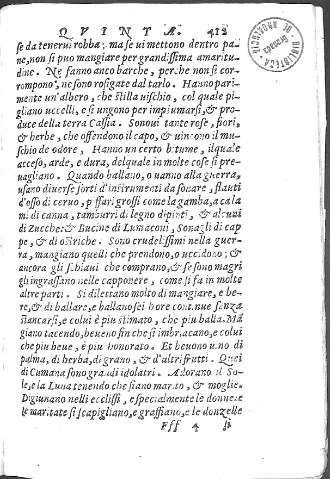 QVINTA. 412
se da tenerui robba; ma se ui mettono dentro pa-
ne, non si puo mangiare per grandissima amaritu-
dine. Ne fanno anco barche, perche non si cor-
rompono, ne sono rosigate dal tarlo. Hanno pari-
mente un'albero, che stilla uischio, col quale pi-
gliano uccelli, e si ungono per impiumarsi, & pro-
duce della terra Cassia. Sonoui tante rose, fiori,
& herbe, che offendono il capo, & uincono il mu-
schio de odore, Hanno un certo bitume, ilquale
acceso, arde, e dura, delquale in molte cose si pre-
uagliano. Quando ballano, o uanno alla guerra,
usano diuerse sorti d'instrumenti da sonare, flauti
d'osso di ceruo, pissari grossi come la gamba, a cala
mi di canna, tamburri di legno dipinti, & alcuni
di Zucche: & Bucine di Lumaconi, Sonagli di cap
pe, & di ostriche. Sono crudelissimi nella guer-
ra, mangiano quelli che prendono, o uccidono; &
ancora gli schiaui che comprano, & se sono magri
gli ingrassano nelle capponere, come si fa in molte
altre parti. Si dilettano molto di mangiare, e be-
re, & di ballare, e ballano sei hore continue senza
stancarsi, e colui è piu stimato, che piu balla. Mã
giano tacendo, beueno fin che si imbriacano, e colui
che piu beue, è piu honorato. Et beuono uino di
palma, di herba, di grano, & d'altri frutti. Quei
di Cumana sono gradi idolatri. Adorano il So-
le, e la Luna tenendo che siano marito, & moglie.
Digiunano nelli ecclissi, e specialmente le donne: e
le maritate si scapigliano, e graffiano, e le donzelle
Fff 4 si
BIBLIOTECA